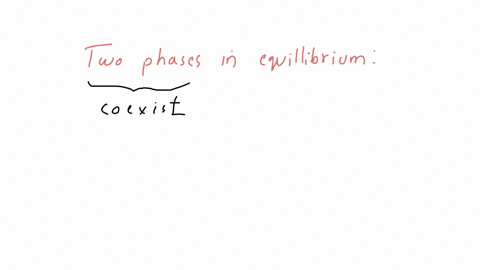 Two phases in equillibrium:
coexist